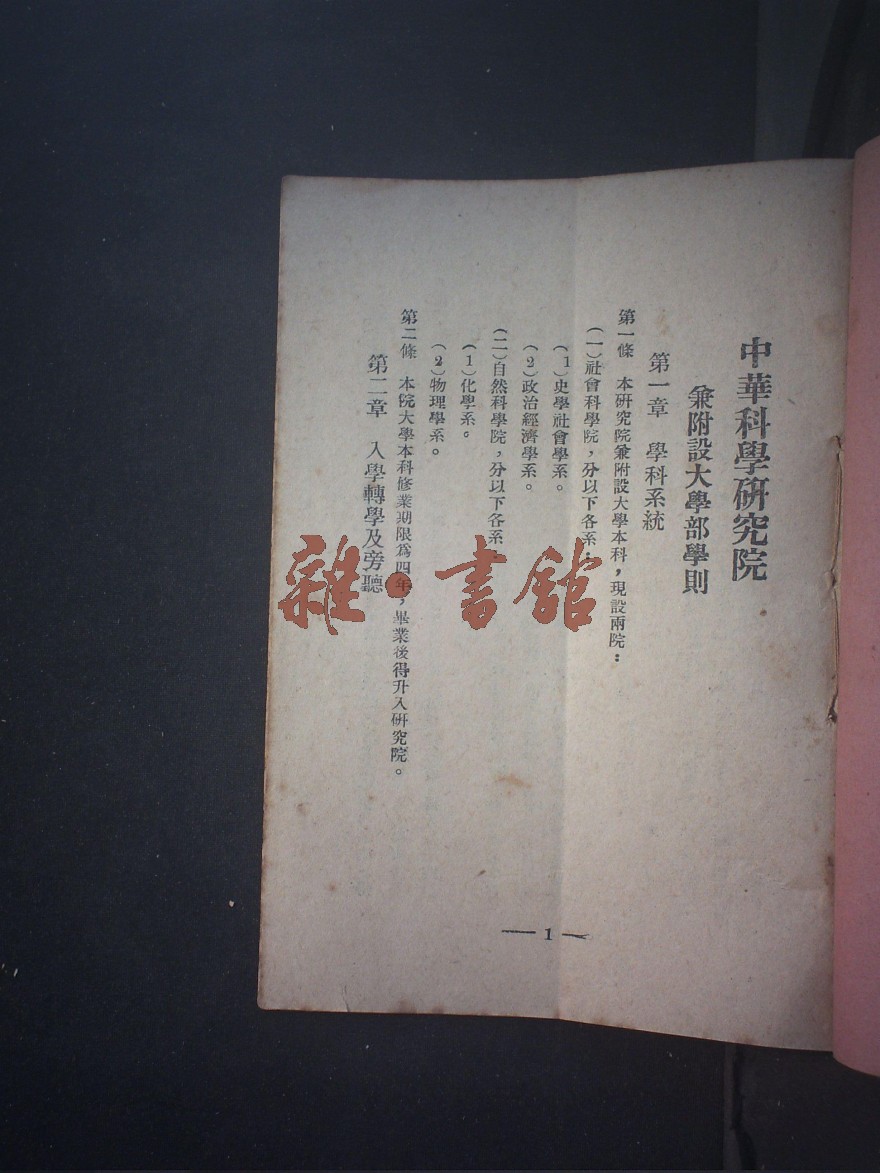 中華科學研究院
兼附設大學部學則
第一章　學科系統
第一條　本研究院兼附設大學本科，現設兩院：
（一）社會科學院，分以下各系：
（1）史學社會學系。
（2）政治經濟學系。
（二）自然科學院，分以下各系
（1）化學系。
（2）物理學系。
第二條　本院大學本科修業期限爲四年，畢業後得升入研究院。
第二章　入學轉學及旁聽
— 1 —
雜·書館